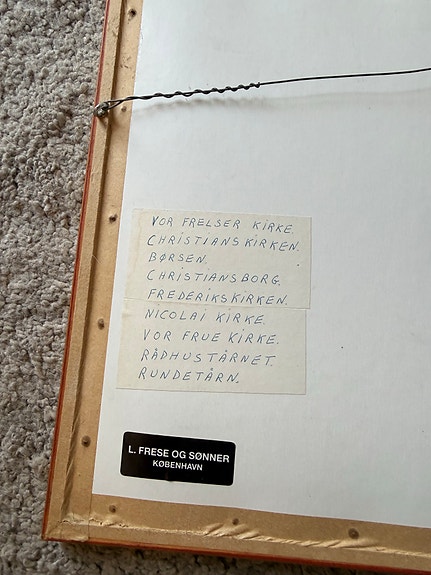 VOR FRELSER KIRKE.
CHRISTIANSKIRKEN.
BØRSEN.
CHRISTIANSBORG.
FREDERIKSKIRKEN.
NICOLAI KIRKE.
VOR FRUE KIRKE.
RÅDHUSTÅRNET.
RUNDETÅRN.
L. FRESE OG SØNNER
KØBENHAVN